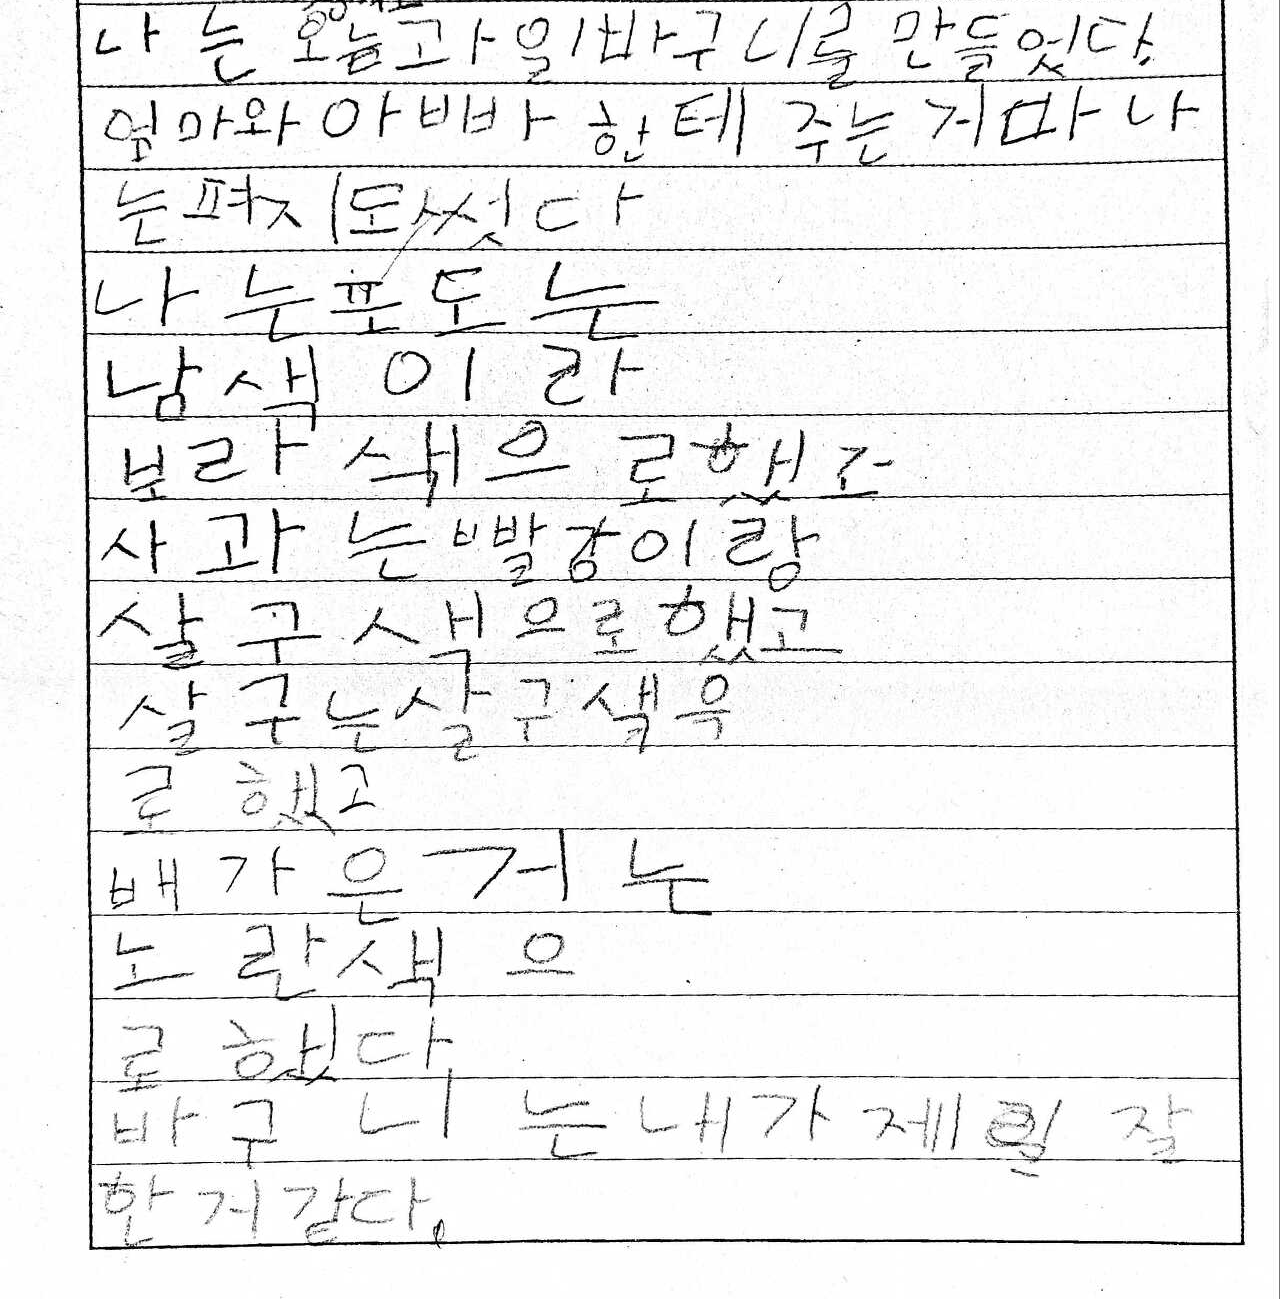 나는 오늘 과일바구니를 만들었다.
엄마와 아빠한테 주는 거마 나
는 펴지도 썻다
나는 포도는
남색이라
보라색으로 했고
사과는 빨강이랑
살구색으로 했고
살구는 살구색윽
로 했고
배가은거는
노란색으
로 했다,
바구니는 내가 제일 잘
한 거 같다.